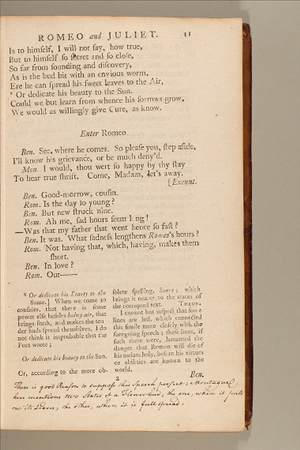 ROMEO and JULIET. 21
Is to himself, I will not say, how true,
But to himself so secret and so close,
So far from sounding and discovery,
As is the bud bit with an envious worm,
Ere he can spread his sweet leaves to the Air,
* Or dedicate his beauty to the Sun.
Could we but learn from whence his sorrows grow,
We would as willingly give Cure, as know.
Enter Romeo
Ben. See, where he comes. So please you, step aside,
I'll know his grievance, or be much deny'd.
Mon. I would, thou wert so happy by thy stay
To hear true shrift. Come, Madam, let's away.
[Exeunt.
Ben. Good-morrow, cousin.
Rom. Is the day so young?
Ben. But new struck nine.
Rom. Ah me, sad hours seem long!
—Was that my father that went hence so fast?
Ben. It was. What sadness lengthens Romeo's hours?
Rom. Not having that, which, having, makes them
short.
Ben. In love?
Rom. Out——
* Or dedicate his Beauty to the
Same.] When we come to
consider, that there is some
power else besides balmy air, that
brings forth, and makes the ten-
der buds spread themselves, I do
not think it improbable that the
Poet wrote;
Or dedicate his beauty to the Sun.
Or, according to the more ob-
solete spelling, Sunne; which
brings it nearer to the traces of
the corrupted text. THEOB.
I cannot but suspect that some
lines are lost, which connected
this simile more closely with the
foregoing speech; these lines, if
such there were, lamented the
danger that Romeo will die of
his melancholy, before his virtues
or abilities are known to the
world.
Ben.
There is good Reason to suppose this Speech perfect; Montague
here mentions two States of a Flower-bud; the one, when it puts
out its Leaves; the other, when it is full-spread.